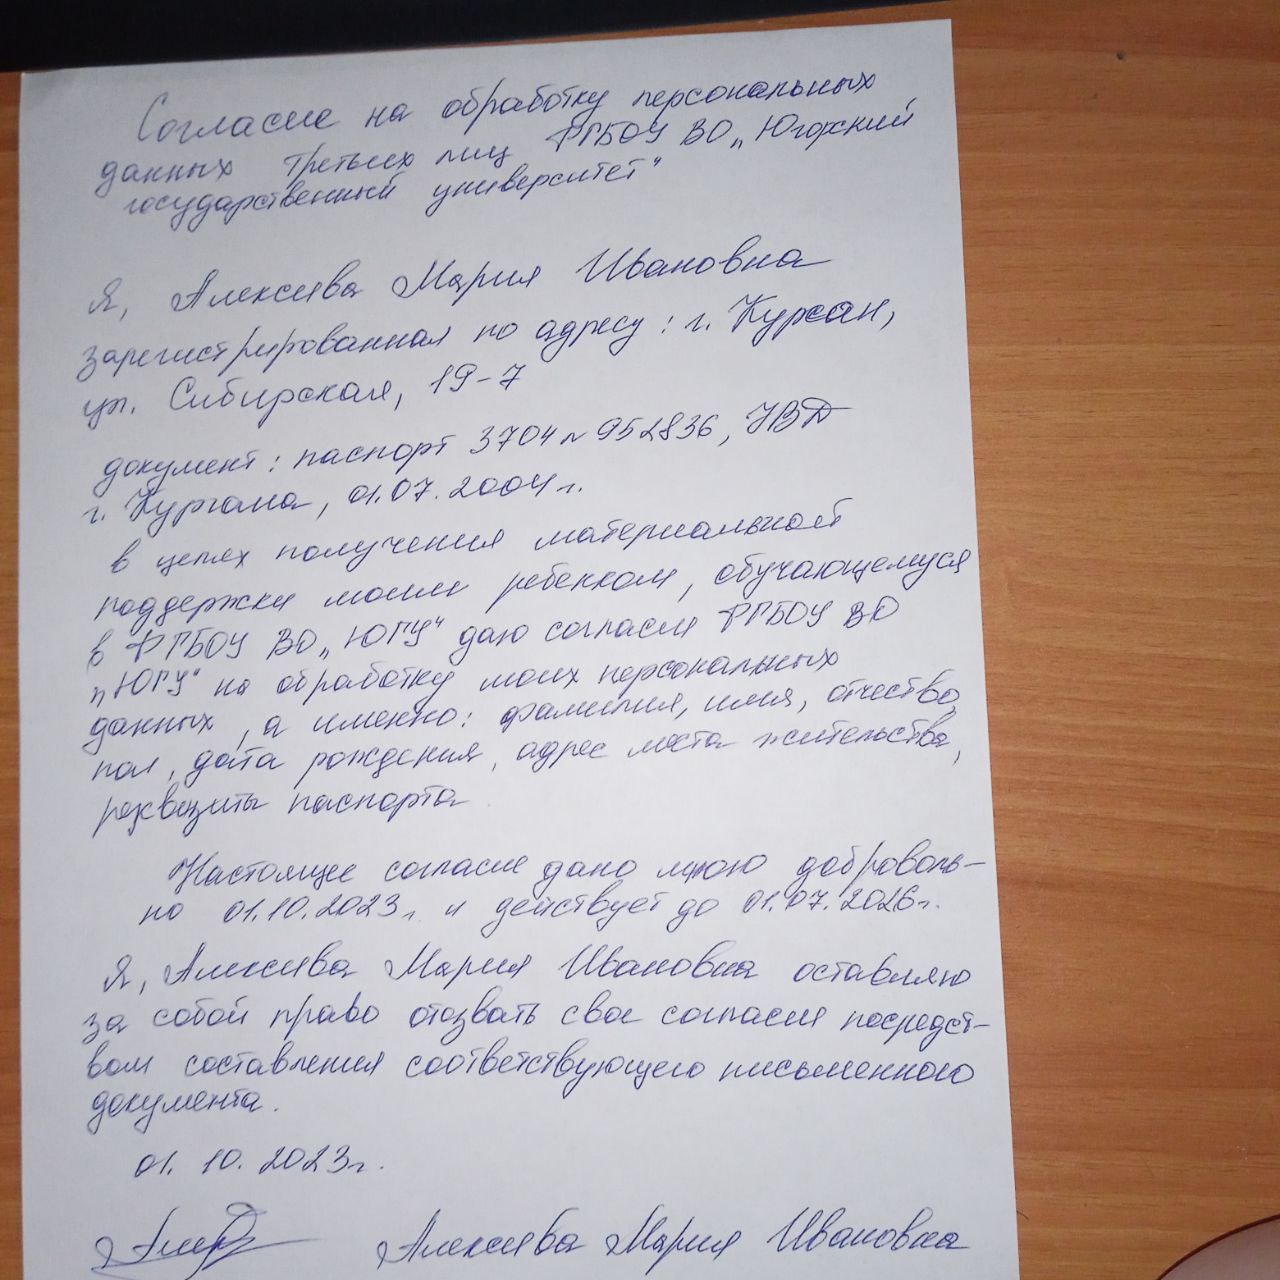 Согласие на обработку персональных
данных третьих лиц ФГБОУ ВО „Югорский
государственный университет"
Я, Алексеева Мария Ивановна
зарегистрированная по адресу: г. Курган,
ул. Сибирская, 19-7
документ: паспорт 3704 N 952836, УВД
г. Кургана, 01.07.2004 г.
в целях получения материальной
поддержки моим ребенком, обучающемуся
в ФГБОУ ВО „ЮГУ" даю согласие ФГБОУ ВО
„ЮГУ" на обработку моих персональных
данных, а именно: фамилия, имя, отчество,
пол, дата рождения, адрес места жительства,
реквизиты паспорта
Настоящее согласие дано мною доброволь-
но 01.10.2023 г. и действует до 01.07.2026 г.
Я, Алексеева Мария Ивановна оставляю
за собой право отозвать свое согласие посредст-
вом составления соответствующего письменного
документа.
01. 10. 2023 г.
Алексеева Мария Ивановна